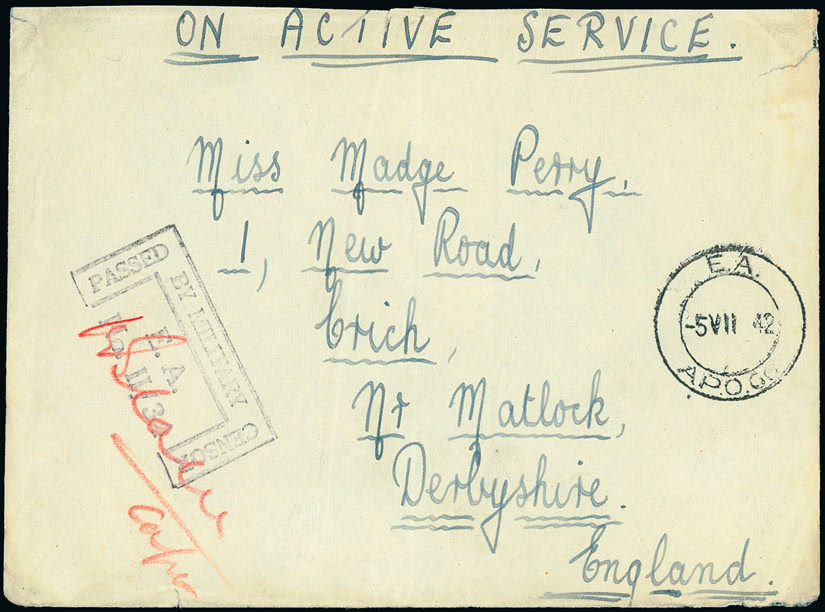 ON ACTIVE SERVICE.
Miss Madge Perry,
1, New Road,
Crich,
Nr Matlock,
Derbyshire.
England.
PASSED
BY MILITARY
CENSOR
E. A.
No. II/3
E.A.
-5 VII 42
A.P.O. 66
Capt